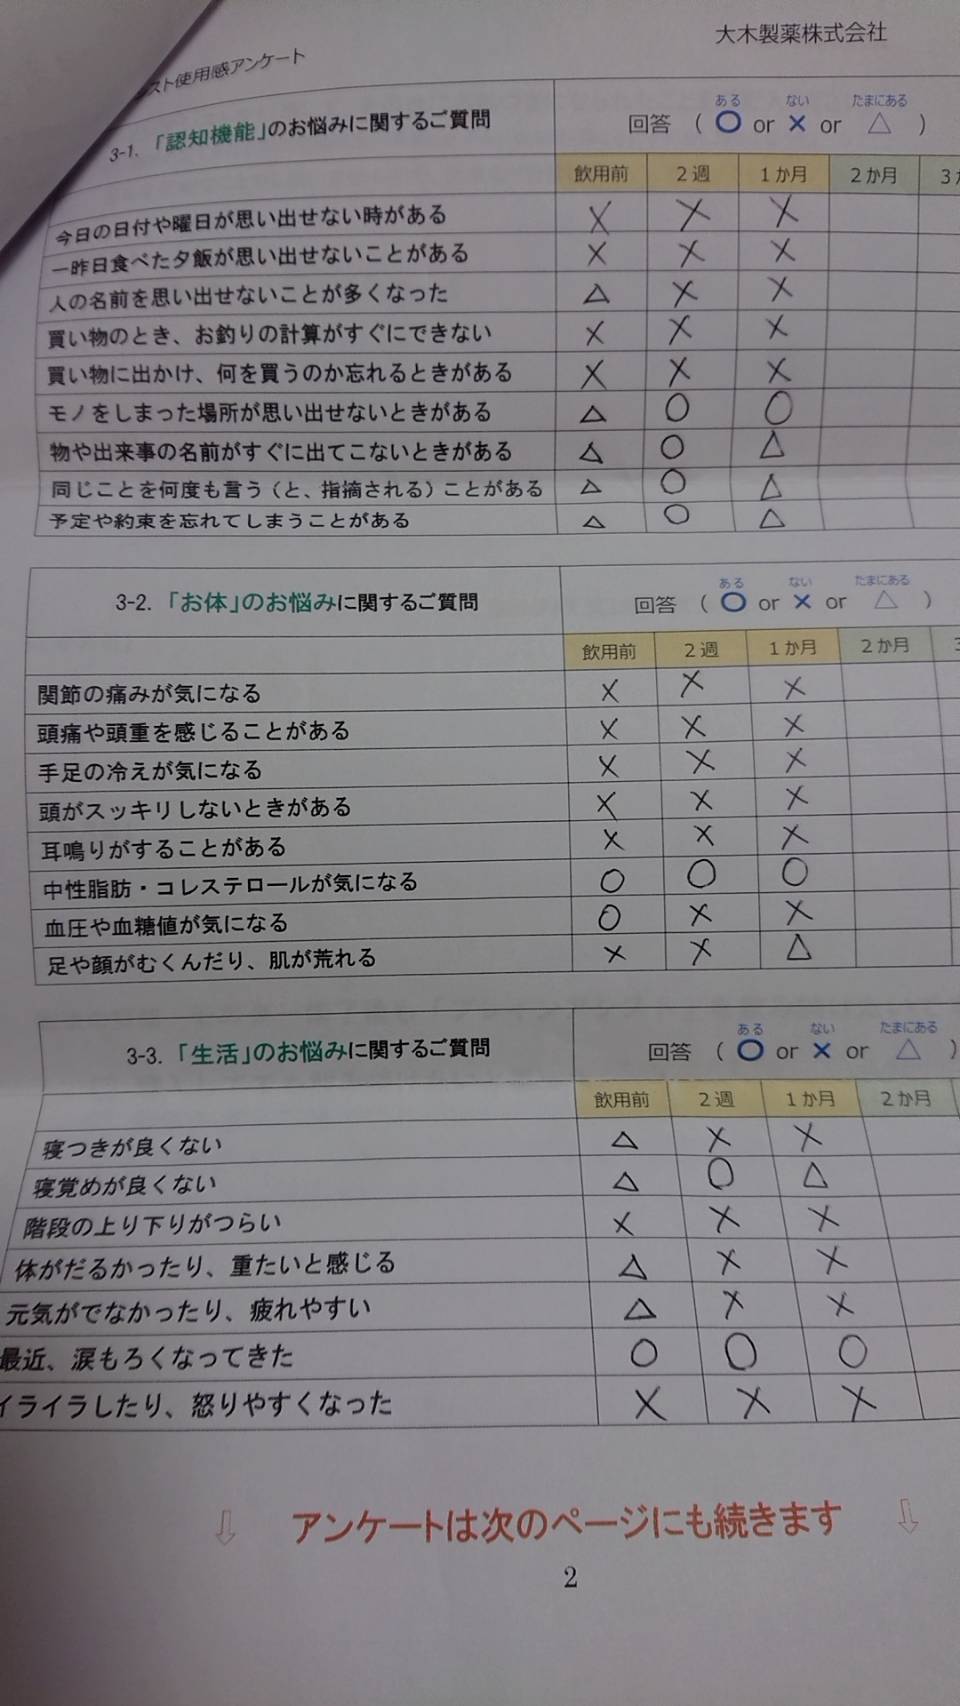 大木製薬株式会社
スト使用感アンケート
3-1.「認知機能」のお悩みに関するご質問
ある ない たまにある
回答 ( 〇 or × or △ )
飲用前 2週 1か月 2か月 3
今日の日付や曜日が思い出せない時がある × × ×
一昨日食べた夕飯が思い出せないことがある × × ×
人の名前を思い出せないことが多くなった △ × ×
買い物のとき、お釣りの計算がすぐにできない × × ×
買い物に出かけ、何を買うのか忘れるときがある × × ×
モノをしまった場所が思い出せないときがある △ 〇 〇
物や出来事の名前がすぐに出てこないときがある △ 〇 △
同じことを何度も言う(と、指摘される)ことがある △ 〇 △
予定や約束を忘れてしまうことがある △ 〇 △
3-2.「お体」のお悩みに関するご質問
ある ない たまにある
回答 ( 〇 or × or △ )
飲用前 2週 1か月 2か月
関節の痛みが気になる × × ×
頭痛や頭重を感じることがある × × ×
手足の冷えが気になる × × ×
頭がスッキリしないときがある × × ×
耳鳴りがすることがある × × ×
中性脂肪・コレステロールが気になる 〇 〇 〇
血圧や血糖値が気になる 〇 × ×
足や顔がむくんだり、肌が荒れる × × △
3-3.「生活」のお悩みに関するご質問
ある ない たまにある
回答 ( 〇 or × or △ )
飲用前 2週 1か月 2か月
寝つきが良くない △ × ×
寝覚めが良くない △ 〇 △
階段の上り下りがつらい × × ×
体がだるかったり、重たいと感じる △ × ×
元気がでなかったり、疲れやすい △ × ×
最近、涙もろくなってきた 〇 〇 〇
イライラしたり、怒りやすくなった × × ×
⇩ アンケートは次のページにも続きます ⇩
2